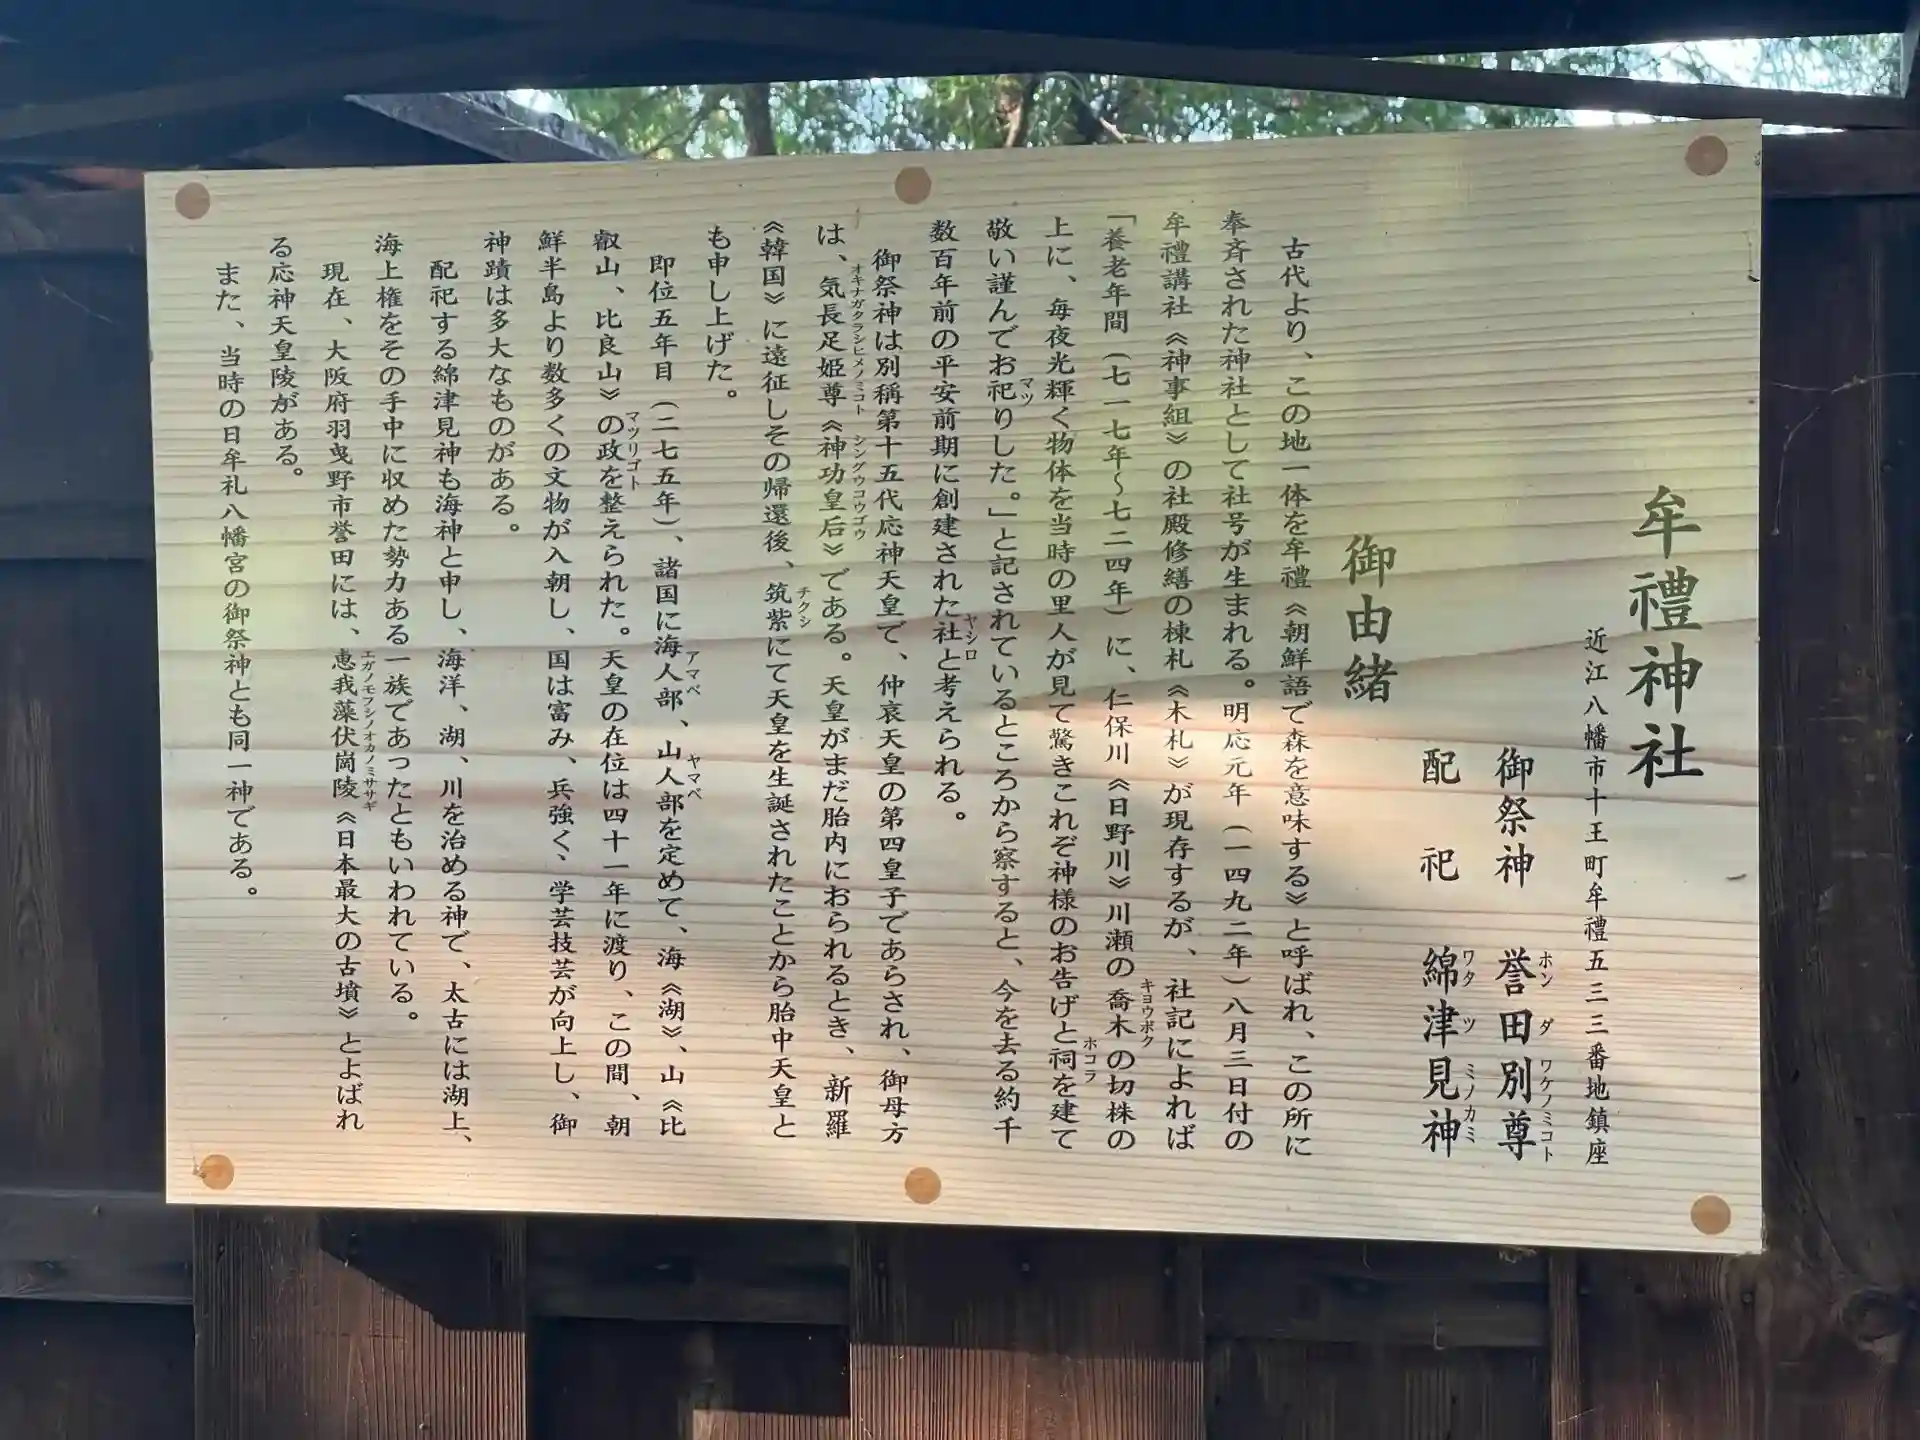 牟禮神社
近江八幡市十王町牟禮五三三番地鎮座
御祭神　誉田別尊
ホンダワケノミコト
配祀　綿津見神
ワタツミノカミ
御由緒
古代より、この地一体を牟禮《朝鮮語で森を意味する》と呼ばれ、この所に
奉斉された神社として社号が生まれる。明応元年（一四九二年）八月三日付の
牟禮講社《神事組》の社殿修繕の棟札《木札》が現存するが、社記によれば
「養老年間（七一七年〜七二四年）に、仁保川《日野川》川瀬の喬木の切株の
キヨウボク
上に、毎夜光輝く物体を当時の里人が見て驚きこれぞ神様のお告げと祠を建て
ホコラ
敬い謹んでお祀りした。」と記されているところから察すると、今を去る約千
マツ
数百年前の平安前期に創建された社と考えられる。
ヤシロ
御祭神は別稱第十五代応神天皇で、仲哀天皇の第四皇子であらされ、御母方
は、気長足姫尊《神功皇后》である。天皇がまだ胎内におられるとき、新羅
オキナガクラシヒメノミコト　シングウコウゴウ
《韓国》に遠征しその帰還後、筑紫にて天皇を生誕されたことから胎中天皇と
チクシ
も申し上げた。
即位五年目（二七五年）、諸国に海人部、山人部を定めて、海《湖》、山《比
アマベ　ヤマベ
叡山、比良山》の政を整えられた。天皇の在位は四十一年に渡り、この間、朝
マツリゴト
鮮半島より数多くの文物が入朝し、国は富み、兵強く、学芸技芸が向上し、御
神蹟は多大なものがある。
配祀する綿津見神も海神と申し、海洋、湖、川を治める神で、太古には湖上、
海上権をその手中に収めた勢力ある一族であったともいわれている。
現在、大阪府羽曳野市誉田には、恵我藻伏崗陵《日本最大の古墳》とよばれ
エガノモフシノオカノミササギ
る応神天皇陵がある。
また、当時の日牟礼八幡宮の御祭神とも同一神である。